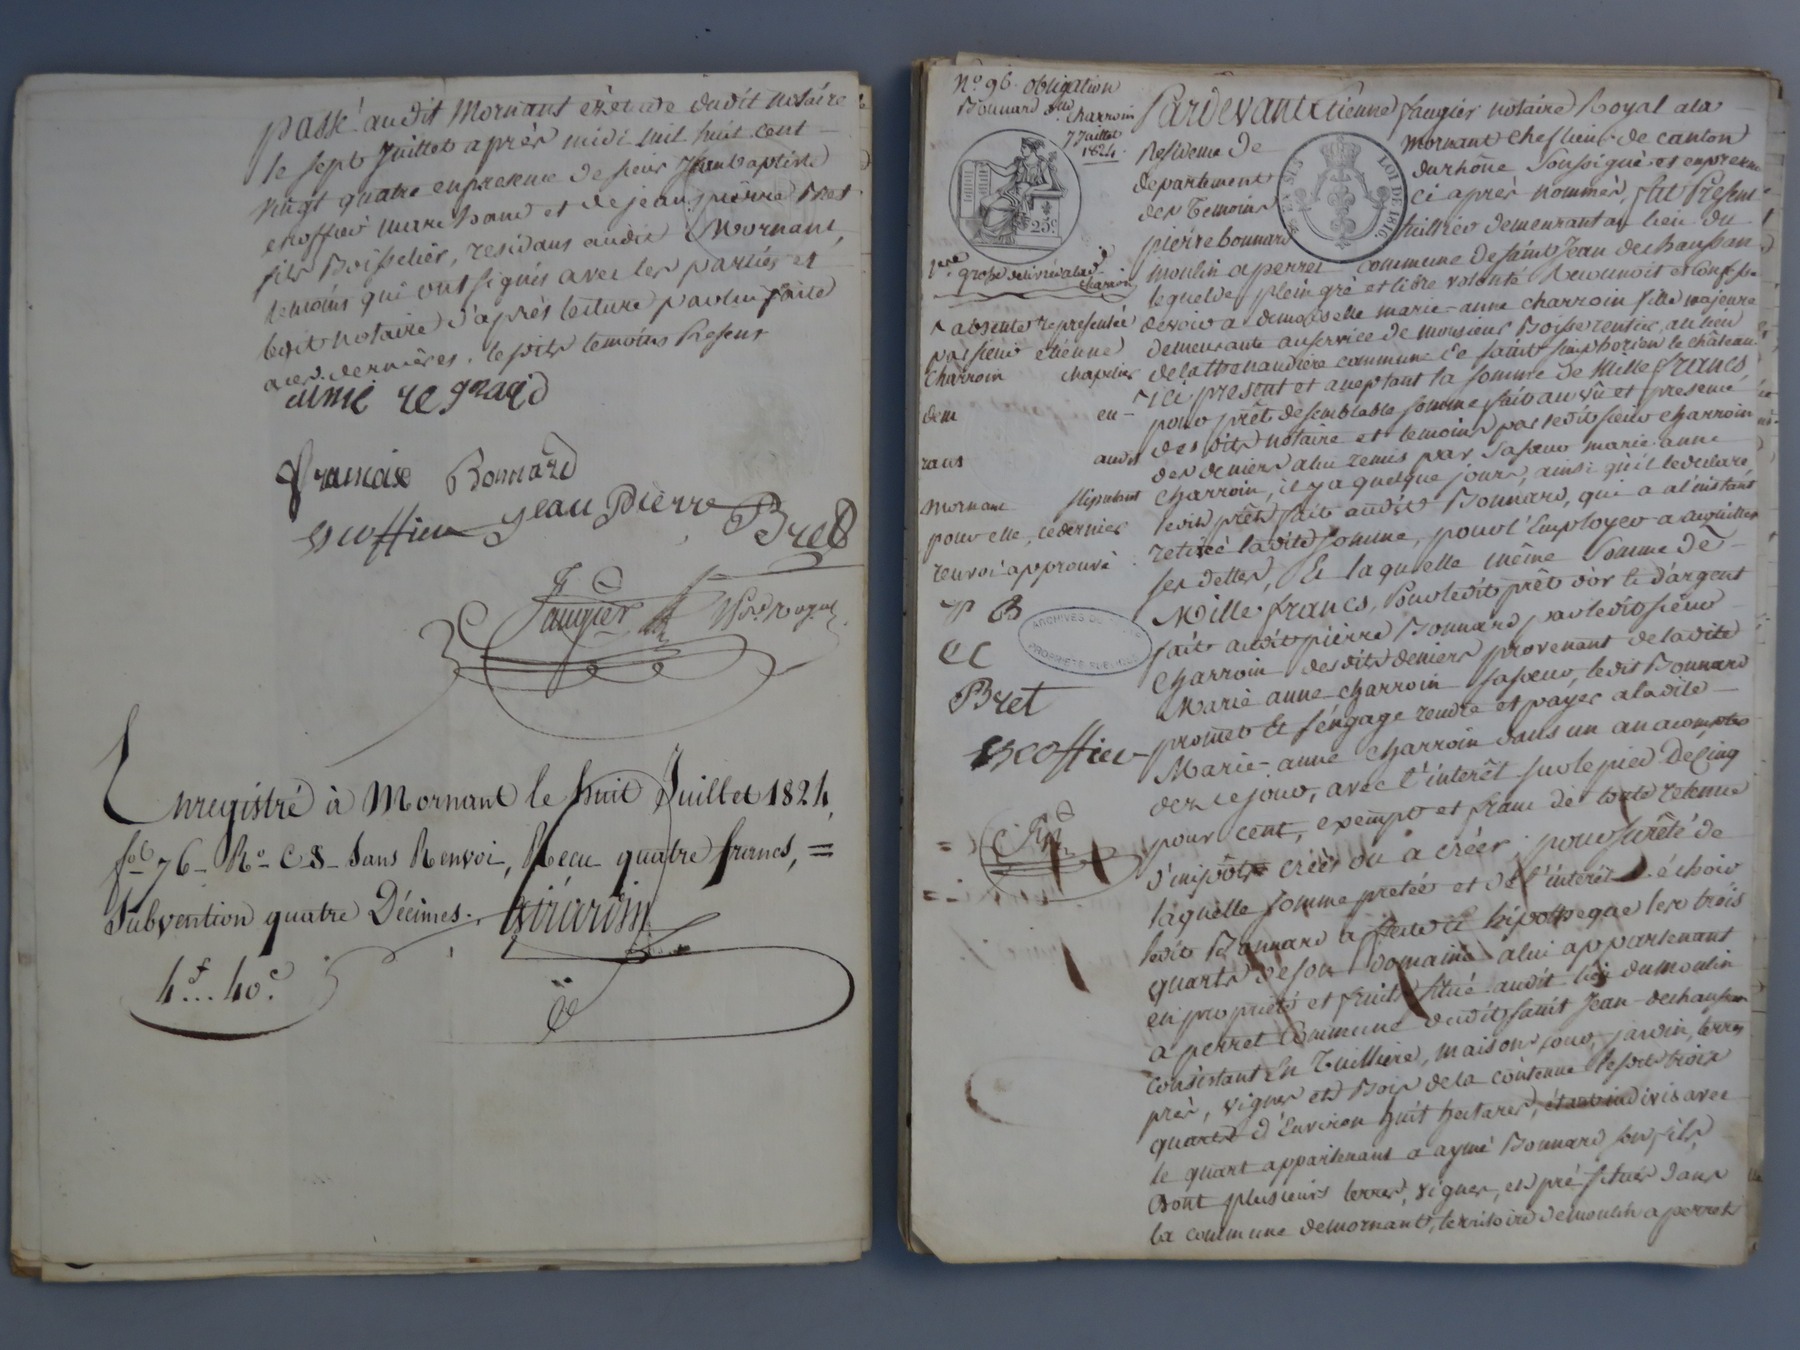 passé audit Mornant et étude dudit notaire
le sept Juillet après midi mil huit cent
vingt quatre en presence de sieur Jean baptiste
escoffier marechand et de jean pierre Bret
fils Boisselier, residans audit Mornant,
temoins qui ont signés avec les parties et
ledit notaire d'après lecture par lui faite
aces dernières, lesdits temoins Presens
aimé
francoise Bonnard
escoffier jean Pierre Bret
faugier
Enregistré à Mornant le huit Juillet 1824,
fol 76 Ro C 8 Sans Renvoi, Recu quatre francs, =
Subvention quatre Décimes. Girardin
4f... 40c.
No 96. obligation
Bonnard à Dlle charroin
7 Juillet
1824.
25c
LOI DE 1816.
1ere grosse delivrée aladte
charroin
Pardevant Etienne faugier notaire Royal ala
Residence de Mornant chef lieu de canton
departement du rhône soussigné et en presence
des Temoins ci après nommés, fut Present
pierre bonnard tuillier demeurant au lieu du
moulin a perret commune de saint Jean de chaussan
lequel de plein gré et libre volonté Reconnoit et confesse
devoir a demoiselle marie-anne charroin fille majeure
demeurante au service de monsieur Boisserentier, au lieu
de la commune de saint simphorien le château
ici present et acceptant la somme de Mille francs
pour prêt de semblable somme fait au vû et presence
desdits notaire et temoins par ledit sieur charroin
des deniers a lui remis par sa soeur marie anne
charroin, il y a quelque jours, ainsi qu'il le declare,
ledit prêt fait audit Bonnard, qui a al'instant
retirée ladite somme, pour l'Employer a acquitter
ses dettes, Et laquelle même somme de
Mille francs, pour ledit prêt d'or et d'argent
fait audit pierre Bonnard par ledit sieur
charroin desdits deniers provenant de ladite
Marie anne charroin sa soeur, ledit Bonnard
promet Et s'engage rendre et payer a ladite
Marie-anne charroin dans un an acompter
de ce jour, avec l'interêt sur le pied De Cinq
pour cent, exempt et franc de toute retenue
d'impôts créés ou à créer; pour sureté de
laquelle somme pretée et de l'interêt à échoir
ledit Bonnard a hipotheque les trois
quarts de son domaine a lui appartenant
en propriété et fruits situé audit lieu du moulin
a perret Commune dudit saint Jean-dechaussan
consistant En Tuilliere, maison, cour, jardin, terres
près, vignes et Bois de la contenue lesdits trois
quarts d'Environ huit hectares, indivis avec
le quart appartenant a aymé Bonnard son fils,
Dont plusieurs terres, vignes, et pré situés dans
la commune de mornant, territoire de moulin a perret
absente representée
par sieur etienne
Charroin chapelier
dem eu-
rant audit
Mornant stipulant
pour elle, ce dernier
renvoi approuvé
P B
EC
Bret
escoffier
ARCHIVES DU RHÔNE
PROPRIÉTÉ PUBLIQUE